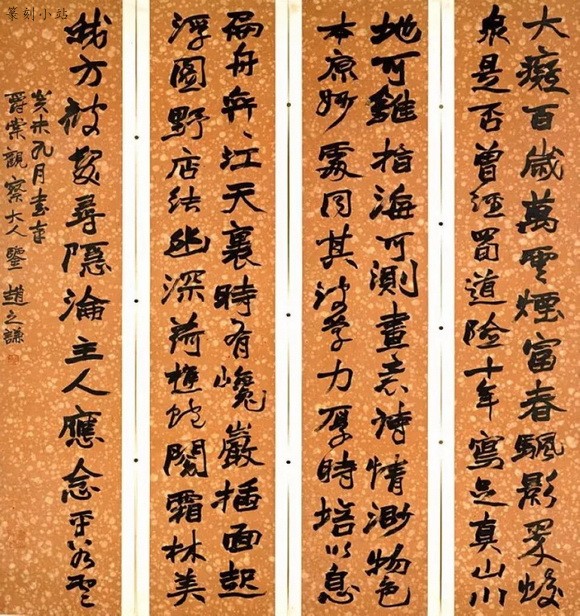 篆刻小站
大癡百歲萬雲煙富春飄影
泉是否曾經蜀道险十年寫足真山川
地可雖指海可測畫意詩情渺物色
本原妙處同其學力厚時培以息
扁舟江天裏時有巉巖插面起
浮圖野店結幽深荷樵蛇閣霜林美
我方被髮尋隱淪主人應念平
癸未九月書奉
爵棠觀察大人鑒 趙之謙